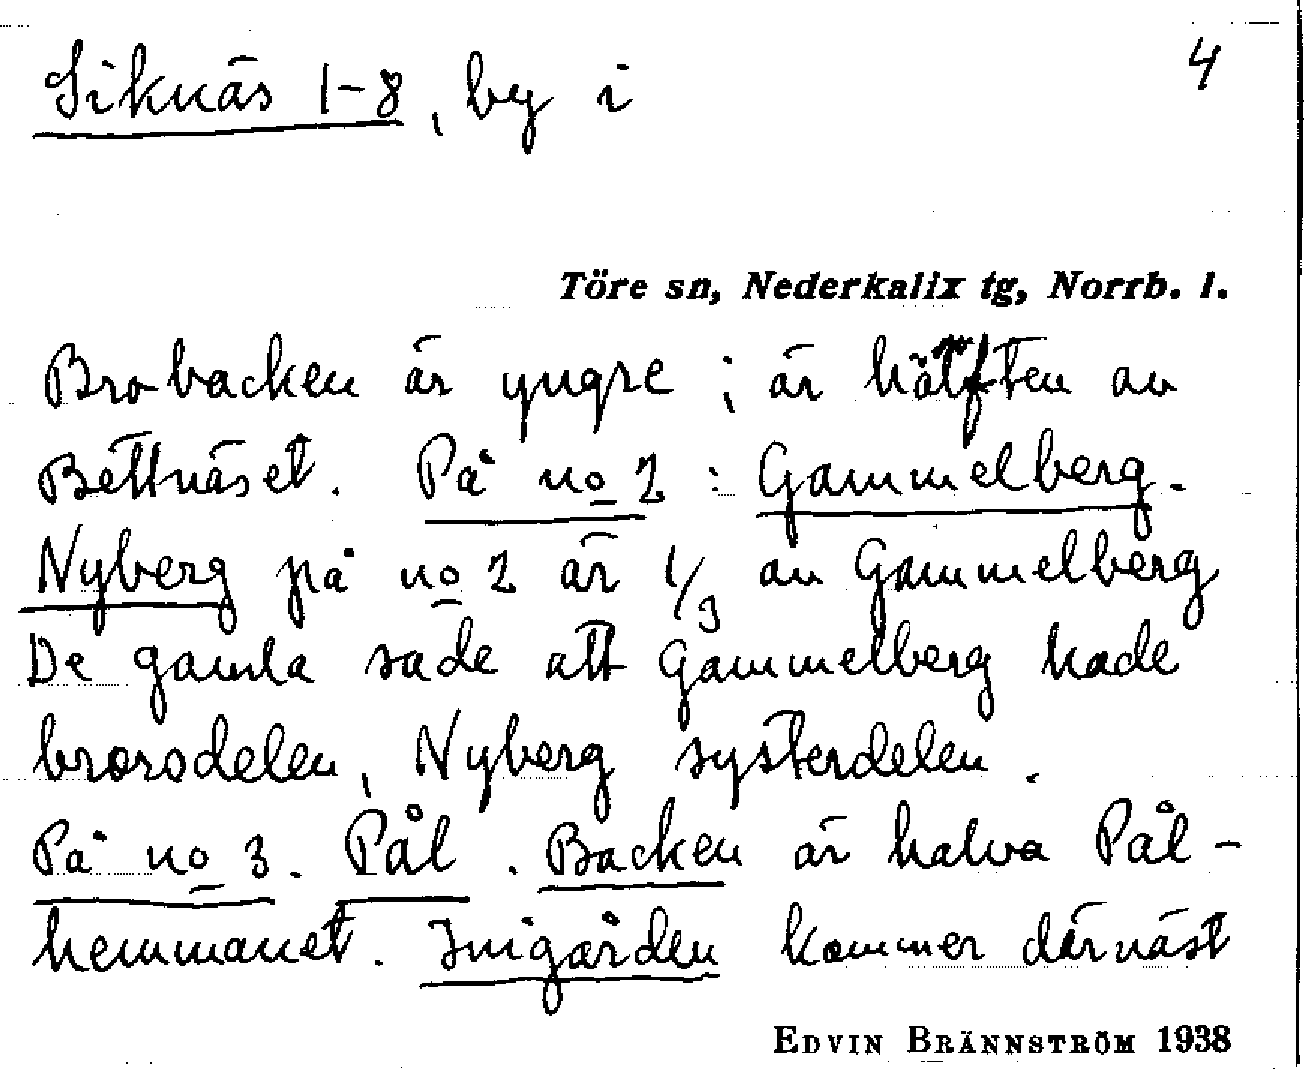 Siknäs 1-8, by i
4
Töre sn, Nederkalix tg, Norrb. l.
Brobacken är yngre; är hälften av
Bettnäset. På no 2 : Gammelberg.
Nyberg på no 2 är 1/3 av Gammelberg
De gamla sade att Gammelberg hade
brorsdelen, Nyberg systerdelen.
På no 3. Pål. Backen är halva Pål-
hemmanet. Inigården kommer därnäst
EDVIN BRÄNNSTRÖM 1938